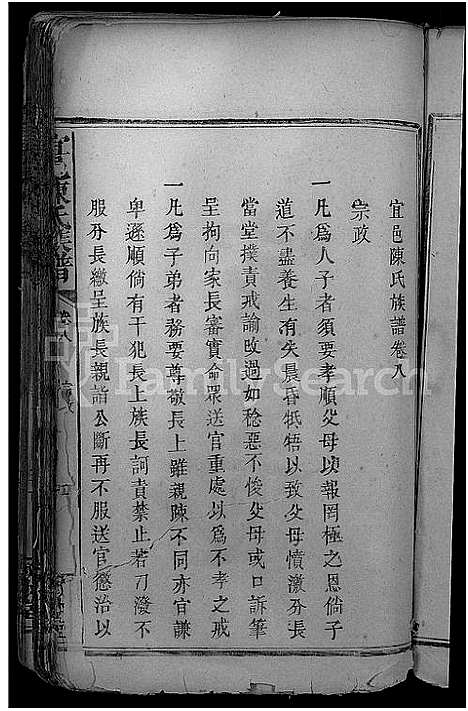 宜邑陳氏族譜卷八
宗政
一凡爲人子者須要孝順父母以報罔極之恩倘子
道不盡養生有失晨昏牴牾以致父母憤激分長
當堂撲責戒諭改過如稔惡不悛父母或口訴筆
呈拘向家長審實命眾送官重處以爲不孝之戒
一凡爲子弟者務要尊敬長上雖親踈不同亦宜謙
卑遜順倘有干犯長上族長訶責禁止若刁潑不
服分長繳呈族長親詣公斷再不服送官懲治以
陳氏族譜
卷八
宗政
FamilySearch